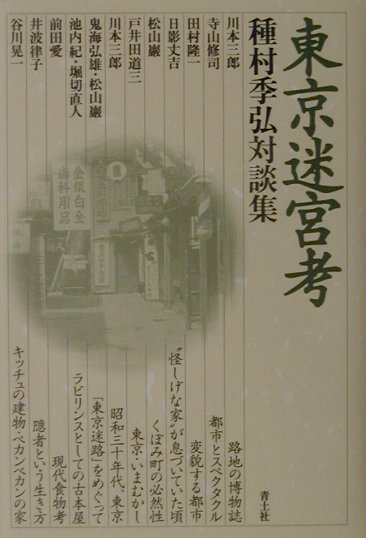 東京迷宮考
種村季弘対談集
川本三郎
寺山修司
田村隆一
日影丈吉
松山巖
戸井田道三
川本三郎
鬼海弘雄・松山巖
池内紀・堀切直人
前田愛
井波律子
谷川晃一
金銀白金
歯科用品
路地の博物誌
都市とスペクタクル
変貌する都市
“怪しげな家”が息づいていた頃
くぼみ町の必然性
東京・いまむかし
昭和三十年代、東京
「東京迷路」をめぐって
ラビリンスとしての古本屋
現代食物考
隠者という生き方
キッチュの建物・ペカンペカンの家
青土社